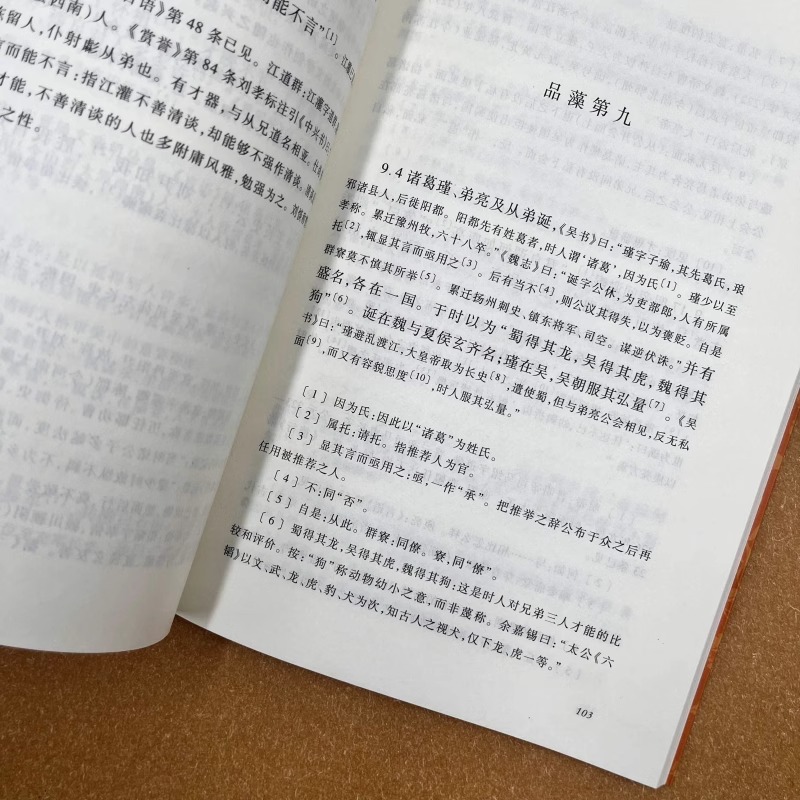 而能不言”[1]。江灌已
言语》第48条已见。江道群：江灌字道群
西南）人。《赏誉》第84条刘孝标注引《中兴书》曰
陈留人，仆射虨从弟也。有才器，与从兄道名相亚。
言而能不言：指江灌不善清谈，却能够不强作清谈。
才能，不善清谈的人也多附庸风雅，勉强为之。
之性。
品藻第九
9.4诸葛瑾、弟亮及从弟诞，《吴书》曰：“瑾字子瑜，其先葛氏，琅
邪诸县人，后徙阳都。阳都先有姓葛者，时人谓‘诸葛’，因为氏[1]。瑾少以至
孝称。累迁豫州牧，六十八卒。”《魏志》曰：“诞字公休，为吏部郎，人有所属
托[2]，辄显其言而亟用之[3]。后有当不[4]，则公议其得失，以为褒贬。自是
群寮莫不慎其所举[5]。累迁扬州刺史、镇东将军、司空。谋逆伏诛。”并有
盛名，各在一国。于时以为“蜀得其龙，吴得其虎，魏得其
狗”[6]。诞在魏与夏侯玄齐名；瑾在吴，吴朝服其弘量[7]。《吴
书》曰：“瑾避乱渡江，大皇帝取为长史[8]，遣使蜀，但与弟亮公会相见，反无私
面[9]，而又有容貌思度[10]，时人服其弘量。”
[1] 因为氏：因此以“诸葛”为姓氏。
[2] 属托：请托。指推荐人为官。
[3] 显其言而亟用之：亟，一作“承”。把推举之辞公布于众之后再
任用被推荐之人。
[4] 不：同“否”。
[5] 自是：从此。群寮：同僚。寮，同“僚”。
[6] 蜀得其龙，吴得其虎，魏得其狗：这是时人对兄弟三人才能的比
较和评价。按：“狗”称动物幼小之意，而非蔑称。余嘉锡曰：“太公《六
韬》以文、武、龙、虎、豹、犬为次，知古人之视犬，仅下龙、虎一等。”
103